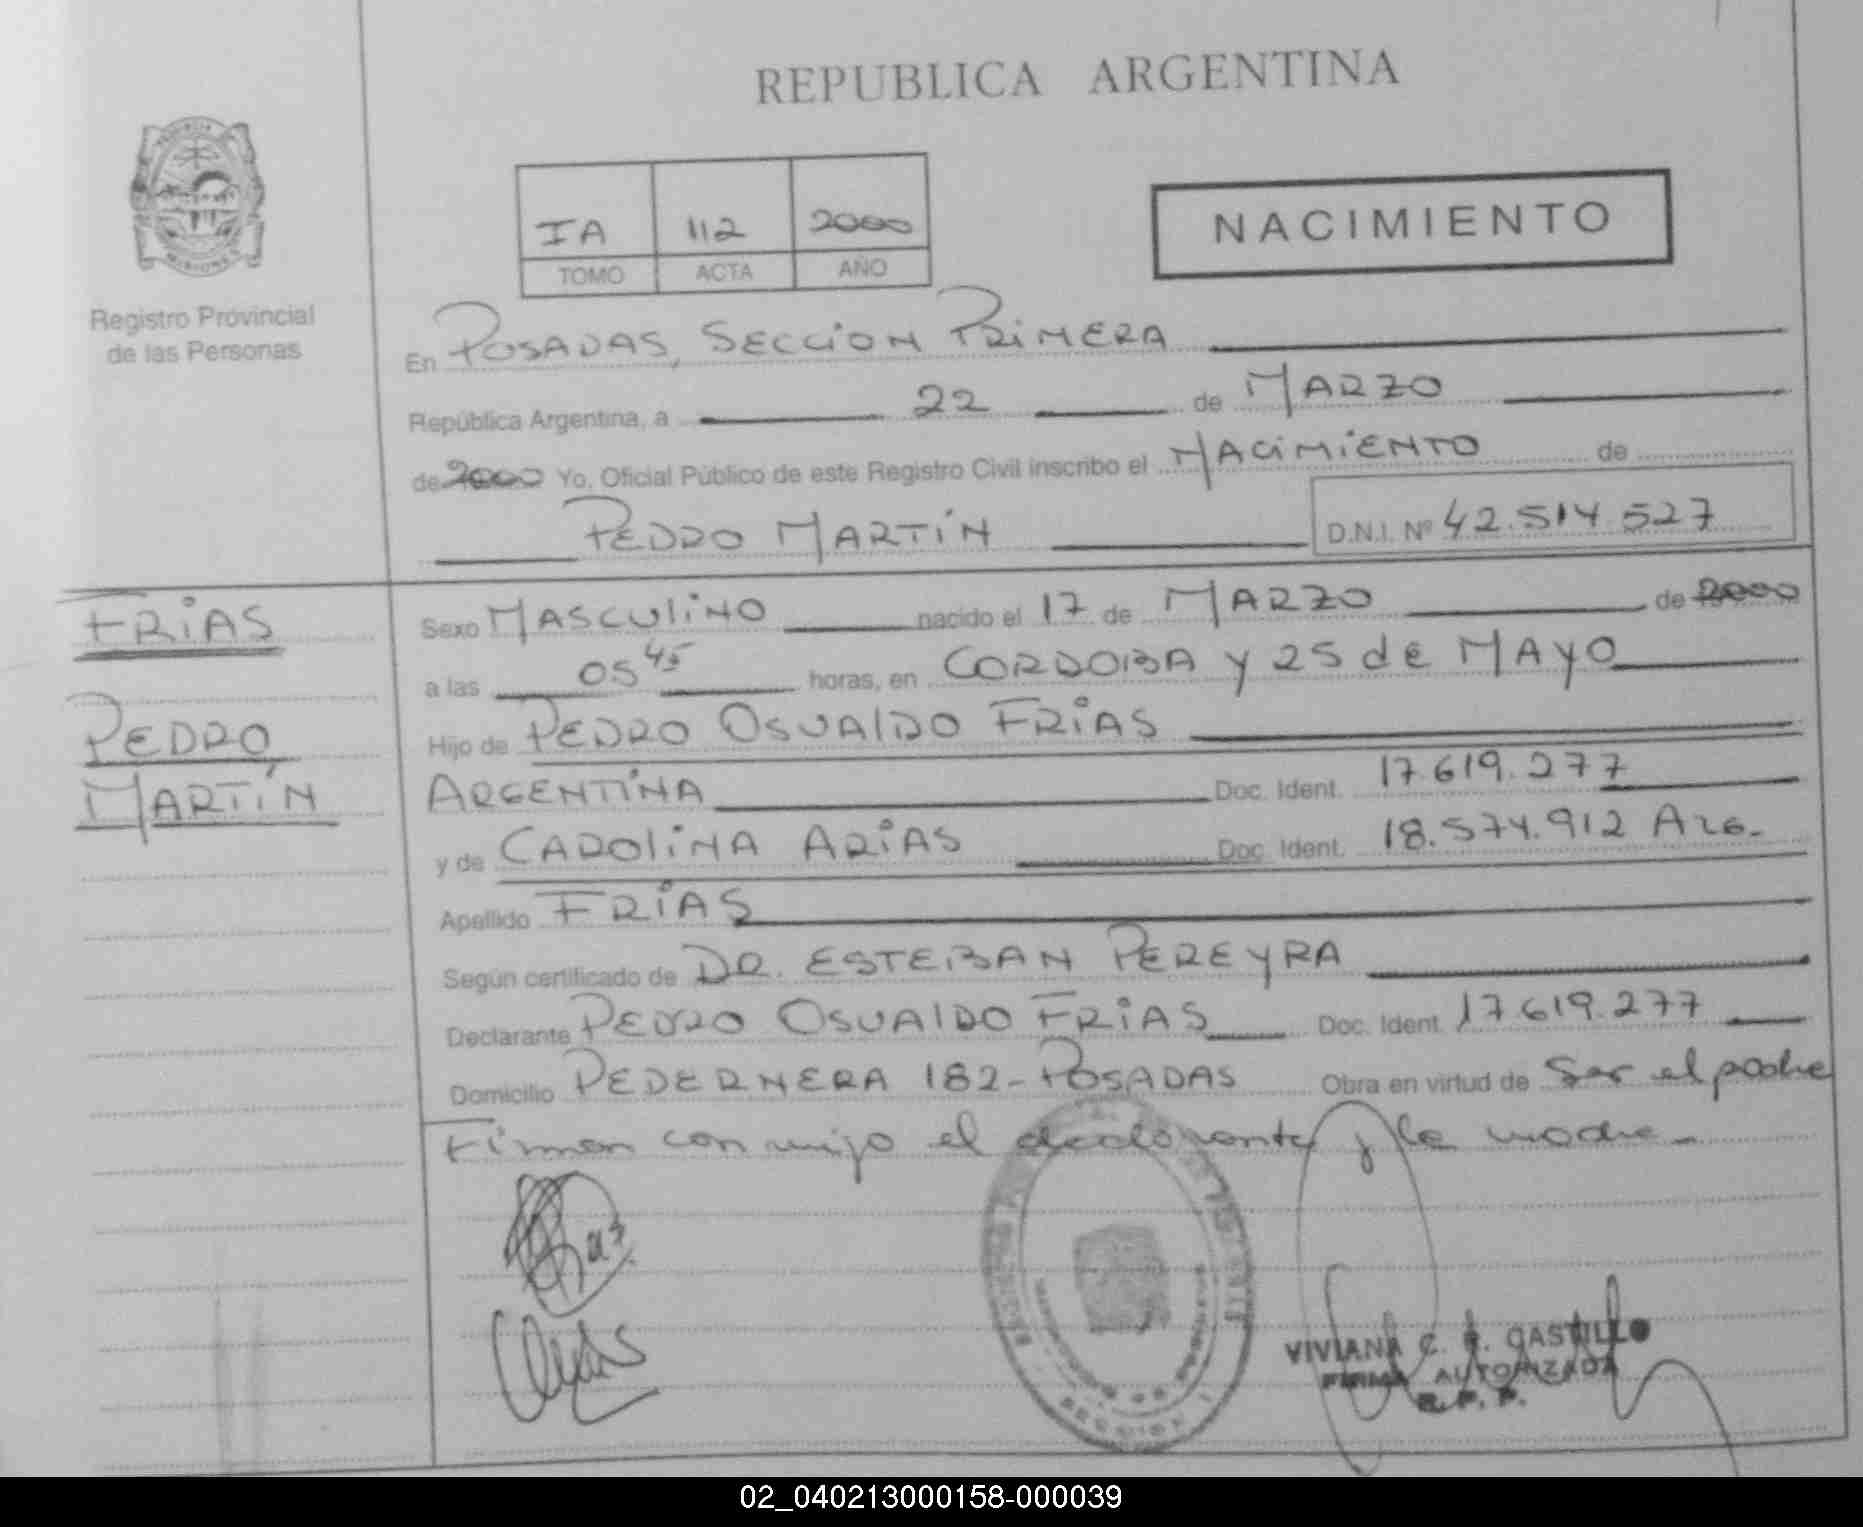 REPUBLICA ARGENTINA
MISIONES
Registro Provincial
de las Personas
IA 112 2000
TOMO ACTA AÑO
NACIMIENTO
En POSADAS, SECCION PRIMERA
República Argentina, a 22 de MARZO
de 2000 Yo, Oficial Público de este Registro Civil inscribo el NACIMIENTO de
PEDRO MARTÍN D.N.I. Nº 42.514.527
FRIAS
PEDRO
MARTÍN
Sexo MASCULINO nacido el 17 de MARZO de 2000
a las 05 45 horas, en CORDOBA y 25 de MAYO
Hijo de PEDRO OSVALDO FRIAS
ARGENTINA Doc. Ident. 17.619.277
y de CAROLINA ARIAS Doc. Ident. 18.574.912 ARG.
Apellido FRIAS
Según certificado de DR. ESTEBAN PEREYRA
Declarante PEDRO OSVALDO FRIAS Doc. Ident. 17.619.277
Domicilio PEDERNERA 182-POSADAS Obra en virtud de Ser el padre
Firman con migo el declarante y la madre.
VIVIANA C. R. CASTILLO
FIRMA AUTORIZADA
R. P. P.
02_040213000158-000039